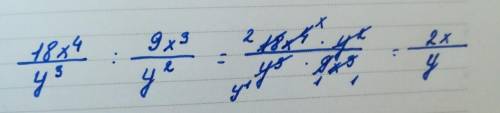 18x⁴/y³ : 9x³/y² = 18x⁴ · y²/y³ · 9x³ = 2x/y